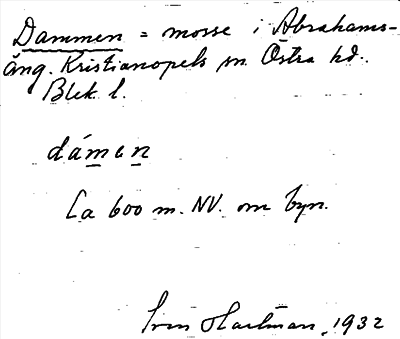 Dammen = mosse i Abrahams-
äng. Kristianopels sn Östra hd.
Blek. l.
dámen
Ca 600 m. NV. om byn.
Sven Hartman, 1932